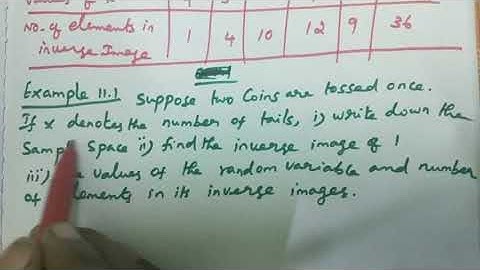 No. of elements in 1 4 10 12 9 36
inverse Image
Example 11.1 Suppose two Coins are tossed once.
If x denotes the number of tails, i) write down the
Sample Space ii) find the inverse image of 1
iii) values of the random variable and number
of elements in its inverse images.